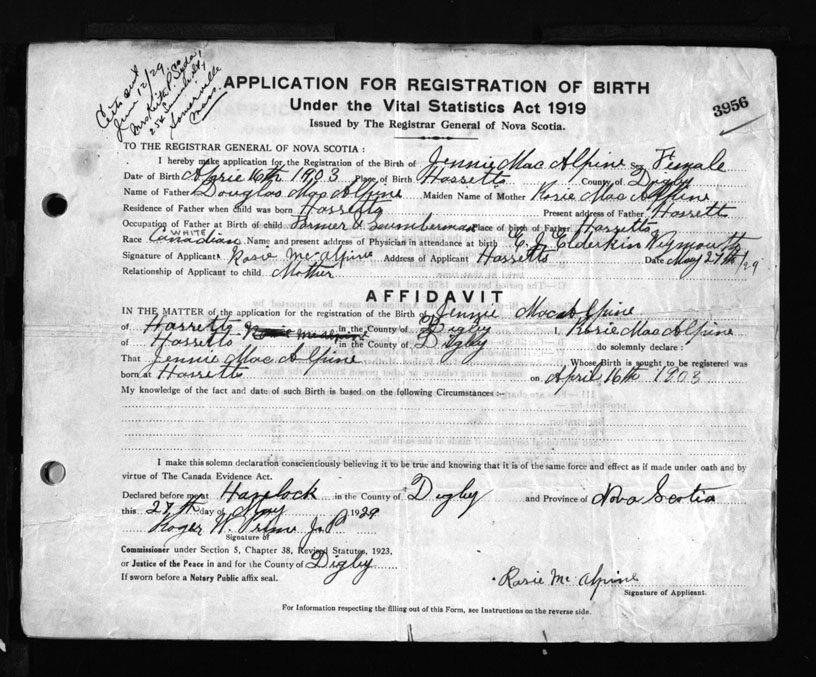 Certs sent
June 12/29
Mrs Keith P.
25
Somerville
Mass.
APPLICATION FOR REGISTRATION OF BIRTH
Under the Vital Statistics Act 1919
Issued by The Registrar General of Nova Scotia.
3956
TO THE REGISTRAR GENERAL OF NOVA SCOTIA :
I hereby make application for the Registration of the Birth of Jennie MacAlpine Sex Female
Date of Birth April 16th 1903 Place of Birth Hassetts County of Digby
Name of Father Douglas MacAlpine Maiden Name of Mother Rosie MacAlpine
Residence of Father when child was born Hassetts Present address of Father Hassetts
Occupation of Father at Birth of child Farmer & Lumberman Place of birth of Father Hassetts
WHITE
Race Canadian Name and present address of Physician in attendance at birth E. J. Elderkin Weymouth
Signature of Applicant Rosie McAlpine Address of Applicant Hassetts Date May 27th/29
Relationship of Applicant to child Mother
AFFIDAVIT
IN THE MATTER of the application for the registration of the Birth of Jennie MacAlpine
of Hassetts in the County of Digby I, Rosie MacAlpine
of Hassetts in the County of Digby do solemnly declare :
That Jennie MacAlpine Whose Birth is sought to be registered was
born at Hassetts on April 16th 1903
My knowledge of the fact and date of such Birth is based on the following Circumstances :-
I make this solemn declaration conscientiously believing it to be true and knowing that it is of the same force and effect as if made under oath and by
virtue of The Canada Evidence Act.
Declared before me at Havelock in the County of Digby and Province of Nova Scotia
this 27th day of May 1929
Roger W. Prime J.P.
Signature of
Commissioner under Section 5, Chapter 38, Revised Statutes, 1923,
or Justice of the Peace in and for the County of Digby
If sworn before a Notary Public affix seal.
Rosie McAlpine
Signature of Applicant.
For Information respecting the filling out of this Form, see Instructions on the reverse side.